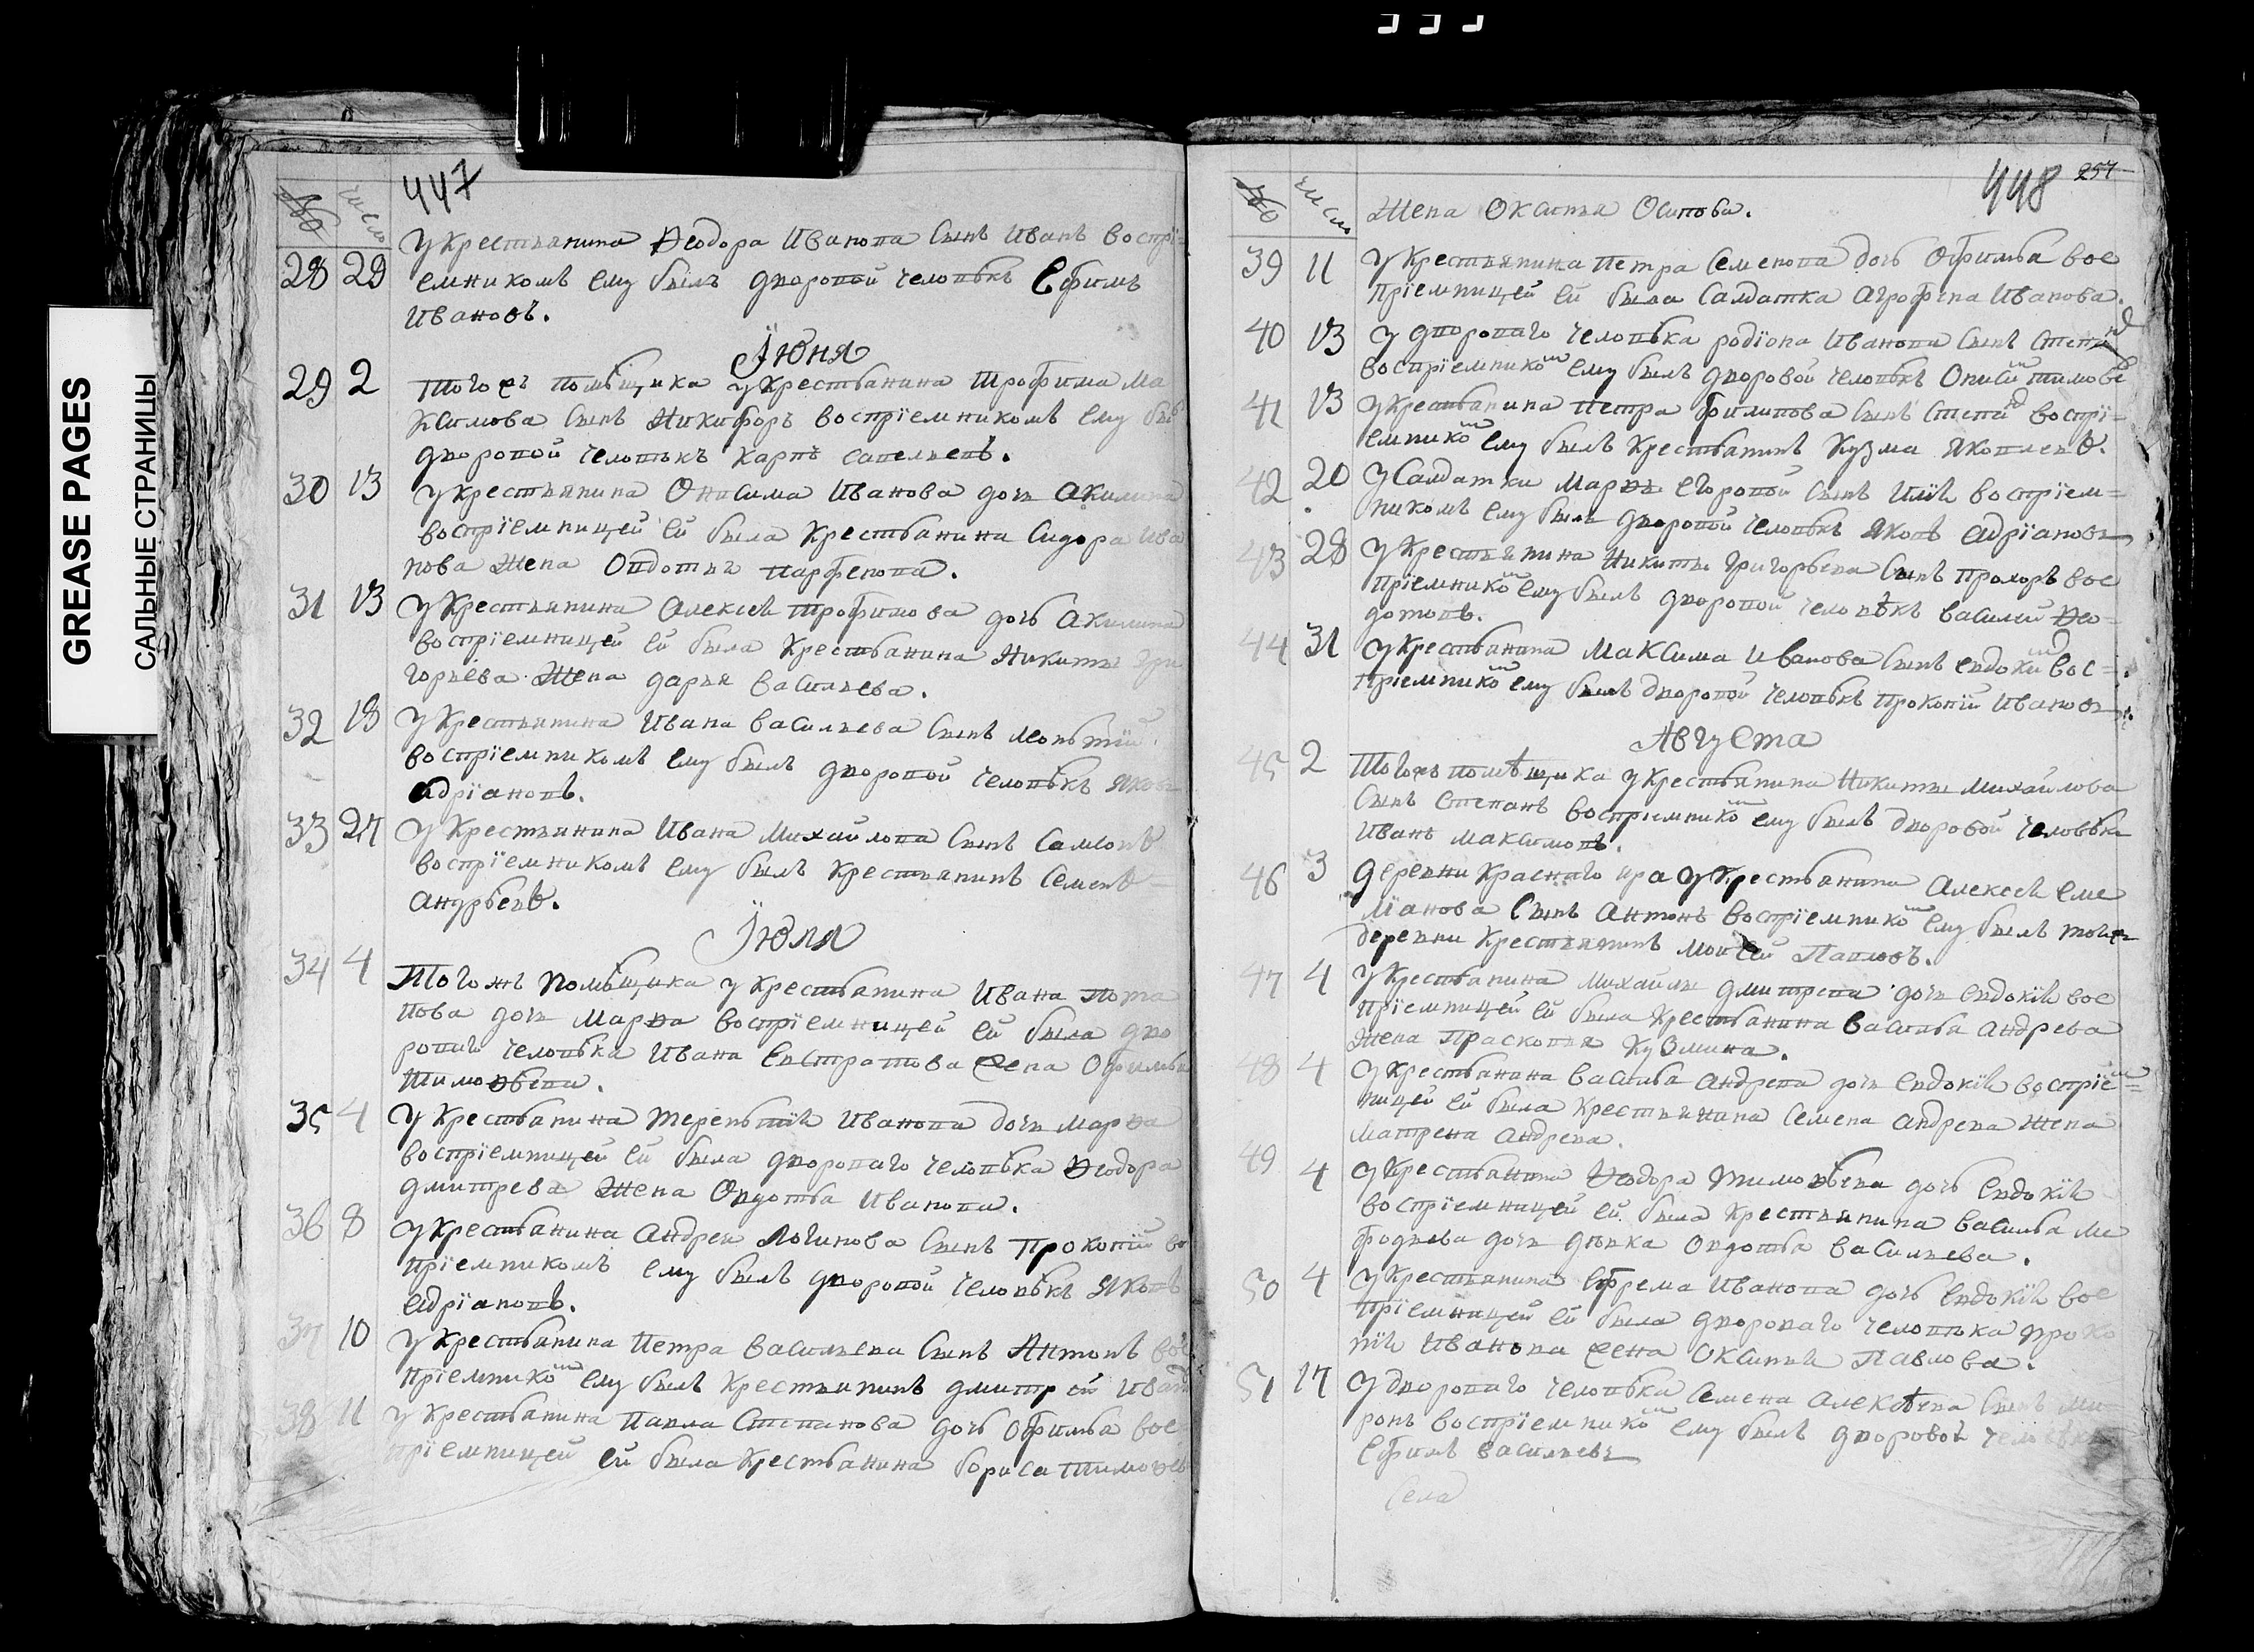 GREASE PAGES
САЛЬНЫЕ СТРАНИЦЫ
447
№ число
28 29 У крестьянина Ѳеодора Иванова сынъ Иванъ воспрі=
емникомъ ему былъ дворовой человѣкъ Ефимъ
Ивановъ.
Іюня
29 2 Тогожъ помѣщика у крестьянина Трофима Ма
ксимова сынъ Никифоръ воспріемникомъ ему бы
дворовой человѣкъ Карпъ Савельевъ.
30 13 У крестьянина Онисима Иванова дочь Акилина
воспріемницей ей была крестьянина Сидора Ива
нова жена Овдотья Парфенова.
31 13 У крестьянина Алексѣя Трофимова дочь Акилина
воспріемницей ей была крестьянина Никиты Гри
горьева жена Дарья Васильева.
32 18 У крестьянина Ивана Васильева сынъ Леонтій
воспріемникомъ ему былъ дворовой человѣкъ Яковъ
Адріановъ.
33 27 У крестьянина Ивана Михайлова сынъ Самсонъ
воспріемникомъ ему былъ крестьянинъ Семенъ
Андрѣевъ.
Іюля
34 4 Тогожъ помѣщика у крестьянина Ивана Пота
пова дочь Марѳа воспріемницей ей была дво
роваго человѣка Ивана Евстратова жена Офимья
Тимоѳѣева.
35 4 У крестьянина Терентія Иванова дочь Марѳа
воспріемницей ей была двороваго человѣка Ѳеодора
Дмитрева жена Овдотья Иванова.
36 8 У крестьянина Андрея Логинова сынъ Прокопій во
пріемникомъ ему былъ дворовой человѣкъ Яковъ
Адріановъ.
37 10 У крестьянина Петра Васильева сынъ Антонъ вос
пріемнико ему былъ крестьянинъ Дмитрей Ивано
38 11 У крестьянина Павла Степанова дочь Офимья вос
пріемницей ей была крестьянина Бориса Тимоѳев
448 257
№ число
жена Оксинья Осипова.
39 11 У крестьянина Петра Семенова дочь Офимья вос
пріемницей ей была салдатка Агрофена Иванова.
40 13 У двороваго человѣка Родіона Иванова сынъ
воспріемником ему былъ дворовой человѣкъ
41 13 У крестьянина Петра Филипова сынъ воспрі=
емником ему былъ крестьянинъ Кузма Яковлевъ.
42 20 У салдатки Марѳы Егоровой сынъ Илія воспріем=
никомъ ему былъ дворовой человѣкъ Яковъ Адріановъ
43 28 У крестьянина Никиты Григорьева сынъ Прохоръ вос
пріемником ему былъ дворовой человѣкъ Василей Ѳео=
дотовъ.
44 31 У крестьянина Максима Иванова сынъ Евдоким вос=
пріемником ему былъ дворовой человѣкъ Прокопій Ивановъ
Августа
45 2 Тогожъ помѣщика у крестьянина Никиты Михайлова
сынъ Степанъ воспріемником ему былъ дворовой человѣкъ
Иванъ Максимовъ.
46 3 Деревни Краснаго Яра у крестьянина Алексѣя Еме
ліанова сынъ Антонъ воспріемником ему былъ тойж
деревни крестьянинъ Моисей Павловъ.
47 4 У крестьянина Михайлы Дмитрева дочь Евдокія вос
пріемницей ей была крестьянина Василья Андрева
жена Прасковья Кузмина.
48 4 У крестьянина Василья Андрева дочь Евдокія воспрієм=
ницей ей была крестьянина Семена Андрева жена
Матрена Андрева.
49 4 У крестьянина Ѳеодора Тимоѳѣева дочь Евдокія
воспріемницей ей была крестьянина Василья Ме
фодьева дочь дѣвка Овдотья Васильева.
50 4 У крестьянина Ефрема Иванова дочь Евдокія вос
пріемницей ей была двороваго человѣка Проко
пія Иванова жена Оксинья Павлова.
51 17 У двороваго человѣка Семена Алексѣева сынъ Ми
ронъ воспріемником ему былъ дворовой человѣкъ
Ефимъ Васильевъ
Села